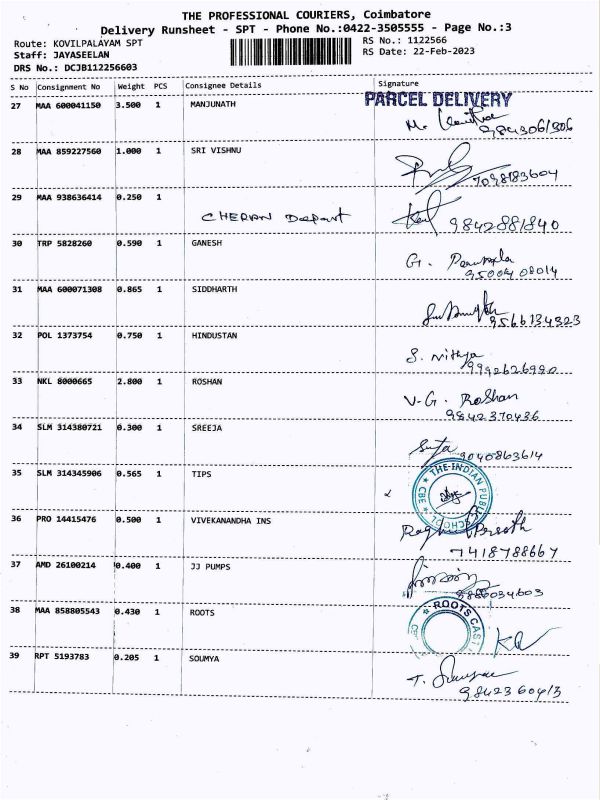 THE PROFESSIONAL COURIERS, Coimbatore
Delivery Runsheet - SPT - Phone No.:0422-3505555 - Page No.:3
Route: KOVILPALAYAM SPT
RS No.: 1122566
Staff: JAYASEELAN
RS Date: 22-Feb-2023
DRS No.: DCJB112256603
S No Consignment No Weight PCS Consignee Details Signature
PARCEL DELIVERY
27 MAA 600041150 3.500 1 MANJUNATH
M.
9843061306
28 MAA 859227560 1.000 1 SRI VISHNU
7098183604
29 MAA 938636414 0.250 1
CHERAN Depart
9842881840
30 TRP 5828260 0.590 1 GANESH
G.
9500408014
31 MAA 600071308 0.865 1 SIDDHARTH
9566134323
32 POL 1373754 0.750 1 HINDUSTAN
S. Nithya
9992626980
33 NKL 8000665 2.800 1 ROSHAN
V-G. Roshan
9842370436
34 SLM 314380721 0.300 1 SREEJA
9040863614
35 SLM 314345906 0.565 1 TIPS
THE INDIAN PUBLIC SCHOOL * CBE *
36 PRO 14415476 0.500 1 VIVEKANANDHA INS
7418788667
37 AMD 26100214 0.400 1 JJ PUMPS
9886034603
38 MAA 858805543 0.430 1 ROOTS
ROOTS CAST
39 RPT 5193783 0.205 1 SOUMYA
T.
9842360413